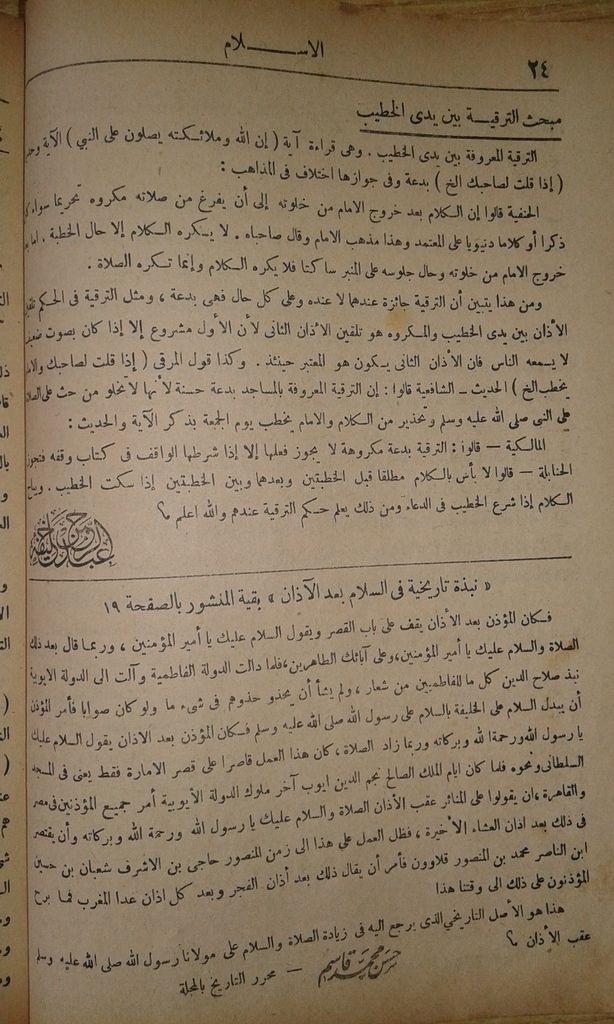 ٢٤
الاســـلام
مبحث الترقيـــة بين يدى الخطيب
الترقية المعروفة بين يدى الخطيب . وهى قراءة آية ( إن الله وملائـكـته يصلون على النبي ) الآية
( إذا قلت لصاحبك الخ ) بدعة وفى جوازها اختلاف فى المذاهب :
الحنفية قالوا إن الـكلام بعد خروج الامام من خلوته إلى أن يفرغ من صلاته مكروه تحريما سواء
ذكرا أو كلاما دنيويا على المعتمد وهذا مذهب الامام وقال صاحباه . لا يـكره الـكلام إلا حال الخطبة . اما
خروج الامام من خلوته وحال جلوسه على المنبر ساكتا فلا يكره الـكلام وإنما تـكره الصلاة .
ومن هذا يتبين أن الترقية جائزة عندهما لا عنده وعلى كل حال فهى بدعة ، ومثل الترقية فى الحكم
الأذان بين يدى الخطيب والمـكروه هو تلقين الأذان الثانى لأن الأول مشروع إلا إذا كان بصوت
لا يسمعه الناس فان الأذان الثانى يـكون هو المعتبر حينئذ . وكذا قول المرقى ( إذا قلت لصاحبك
يخطب الخ ) الحديث ــ الشافعية قالوا : إن الترقية المعروفة بالمساجد بدعة حسنة لأنها لا تخلو من حث على
على النبى صلى الله عليه وسلم وتحذير من الـكلام والامام يخطب يوم الجمعة بذكر الآية والحديث :
المالـكية — قالوا : الترقية بدعة مكروهة لا يجوز فعلها إلا إذا شرطها الواقف فى كتاب وقفه فتجوز
الحنابلة — قالوا لا بأس بالـكلام مطلقا قبل الخطبتين وبعدهما وبين الخطبتين إذا سكت الخطيب . ويباح
الـكلام إذا شرع الخطيب فى الدعاء ومن ذلك يعلم حـكم الترقية عندهم والله اعلم ؟
عبد الرحمن خليفة
« نبذة تاريخية فى السلام بعد الآذان » بقية المنشور بالصفحة ١٩
فـكان المؤذن بعد الأذان يقف على باب القصر ويقول السلام عليك يا أمير المؤمنين ، وربما قال بعد ذلك
الصلاة والسلام عليك يا أمير المؤمنين، وعلى آبائك الطاهرين، فلما دالت الدولة الفاطمية وآلت الى الدولة الايوبية
نبذ صلاح الدين كل ما للفاطميين من شعار ، ولم يشأ أن يحذو حذوهم فى شىء ما ولو كان صوابا فأمر المؤذن
أن يبدل السلام على الخليفة بالسلام على رسول الله صلى الله عليه وسلم فـكان المؤذن بعد الاذان يقول السلام عليك
يا رسول الله ورحمة الله وبركاته وربما زاد الصلاة ، كان هذا العمل قاصرا على قصر الامارة فقط يعنى فى المسجد
السلطانى ونحوه فلما كان ايام الملك الصالح نجم الدين ايوب آخر ملوك الدولة الأيوبية أمر جميع المؤذنين فى مصر
والقاهرة ، ان يقولوا على المنائر عقب الأذان الصلاة والسلام عليك يا رسول الله ورحمة الله وبركاته وأن يقتصر
فى ذلك بعد اذان العشاء الأخيرة ، فظل العمل على هذا الى زمن المنصور حاجى بن الاشرف شعبان بن حسين
ابن الناصر محمد بن المنصور قلاوون فأمر أن يقال ذلك بعد أذان الفجر وبعد كل اذان عدا المغرب فما برح
المؤذنون على ذلك الى وقتنا هذا
هذا هو الأصل التاريخى الذى يرجع اليه فى زيادة الصلاة والسلام على مولانا رسول الله صلى الله عليه وسلم
عقب الأذان ؟
حسن محمد قاسم — محرر التاريخ بالمجلة